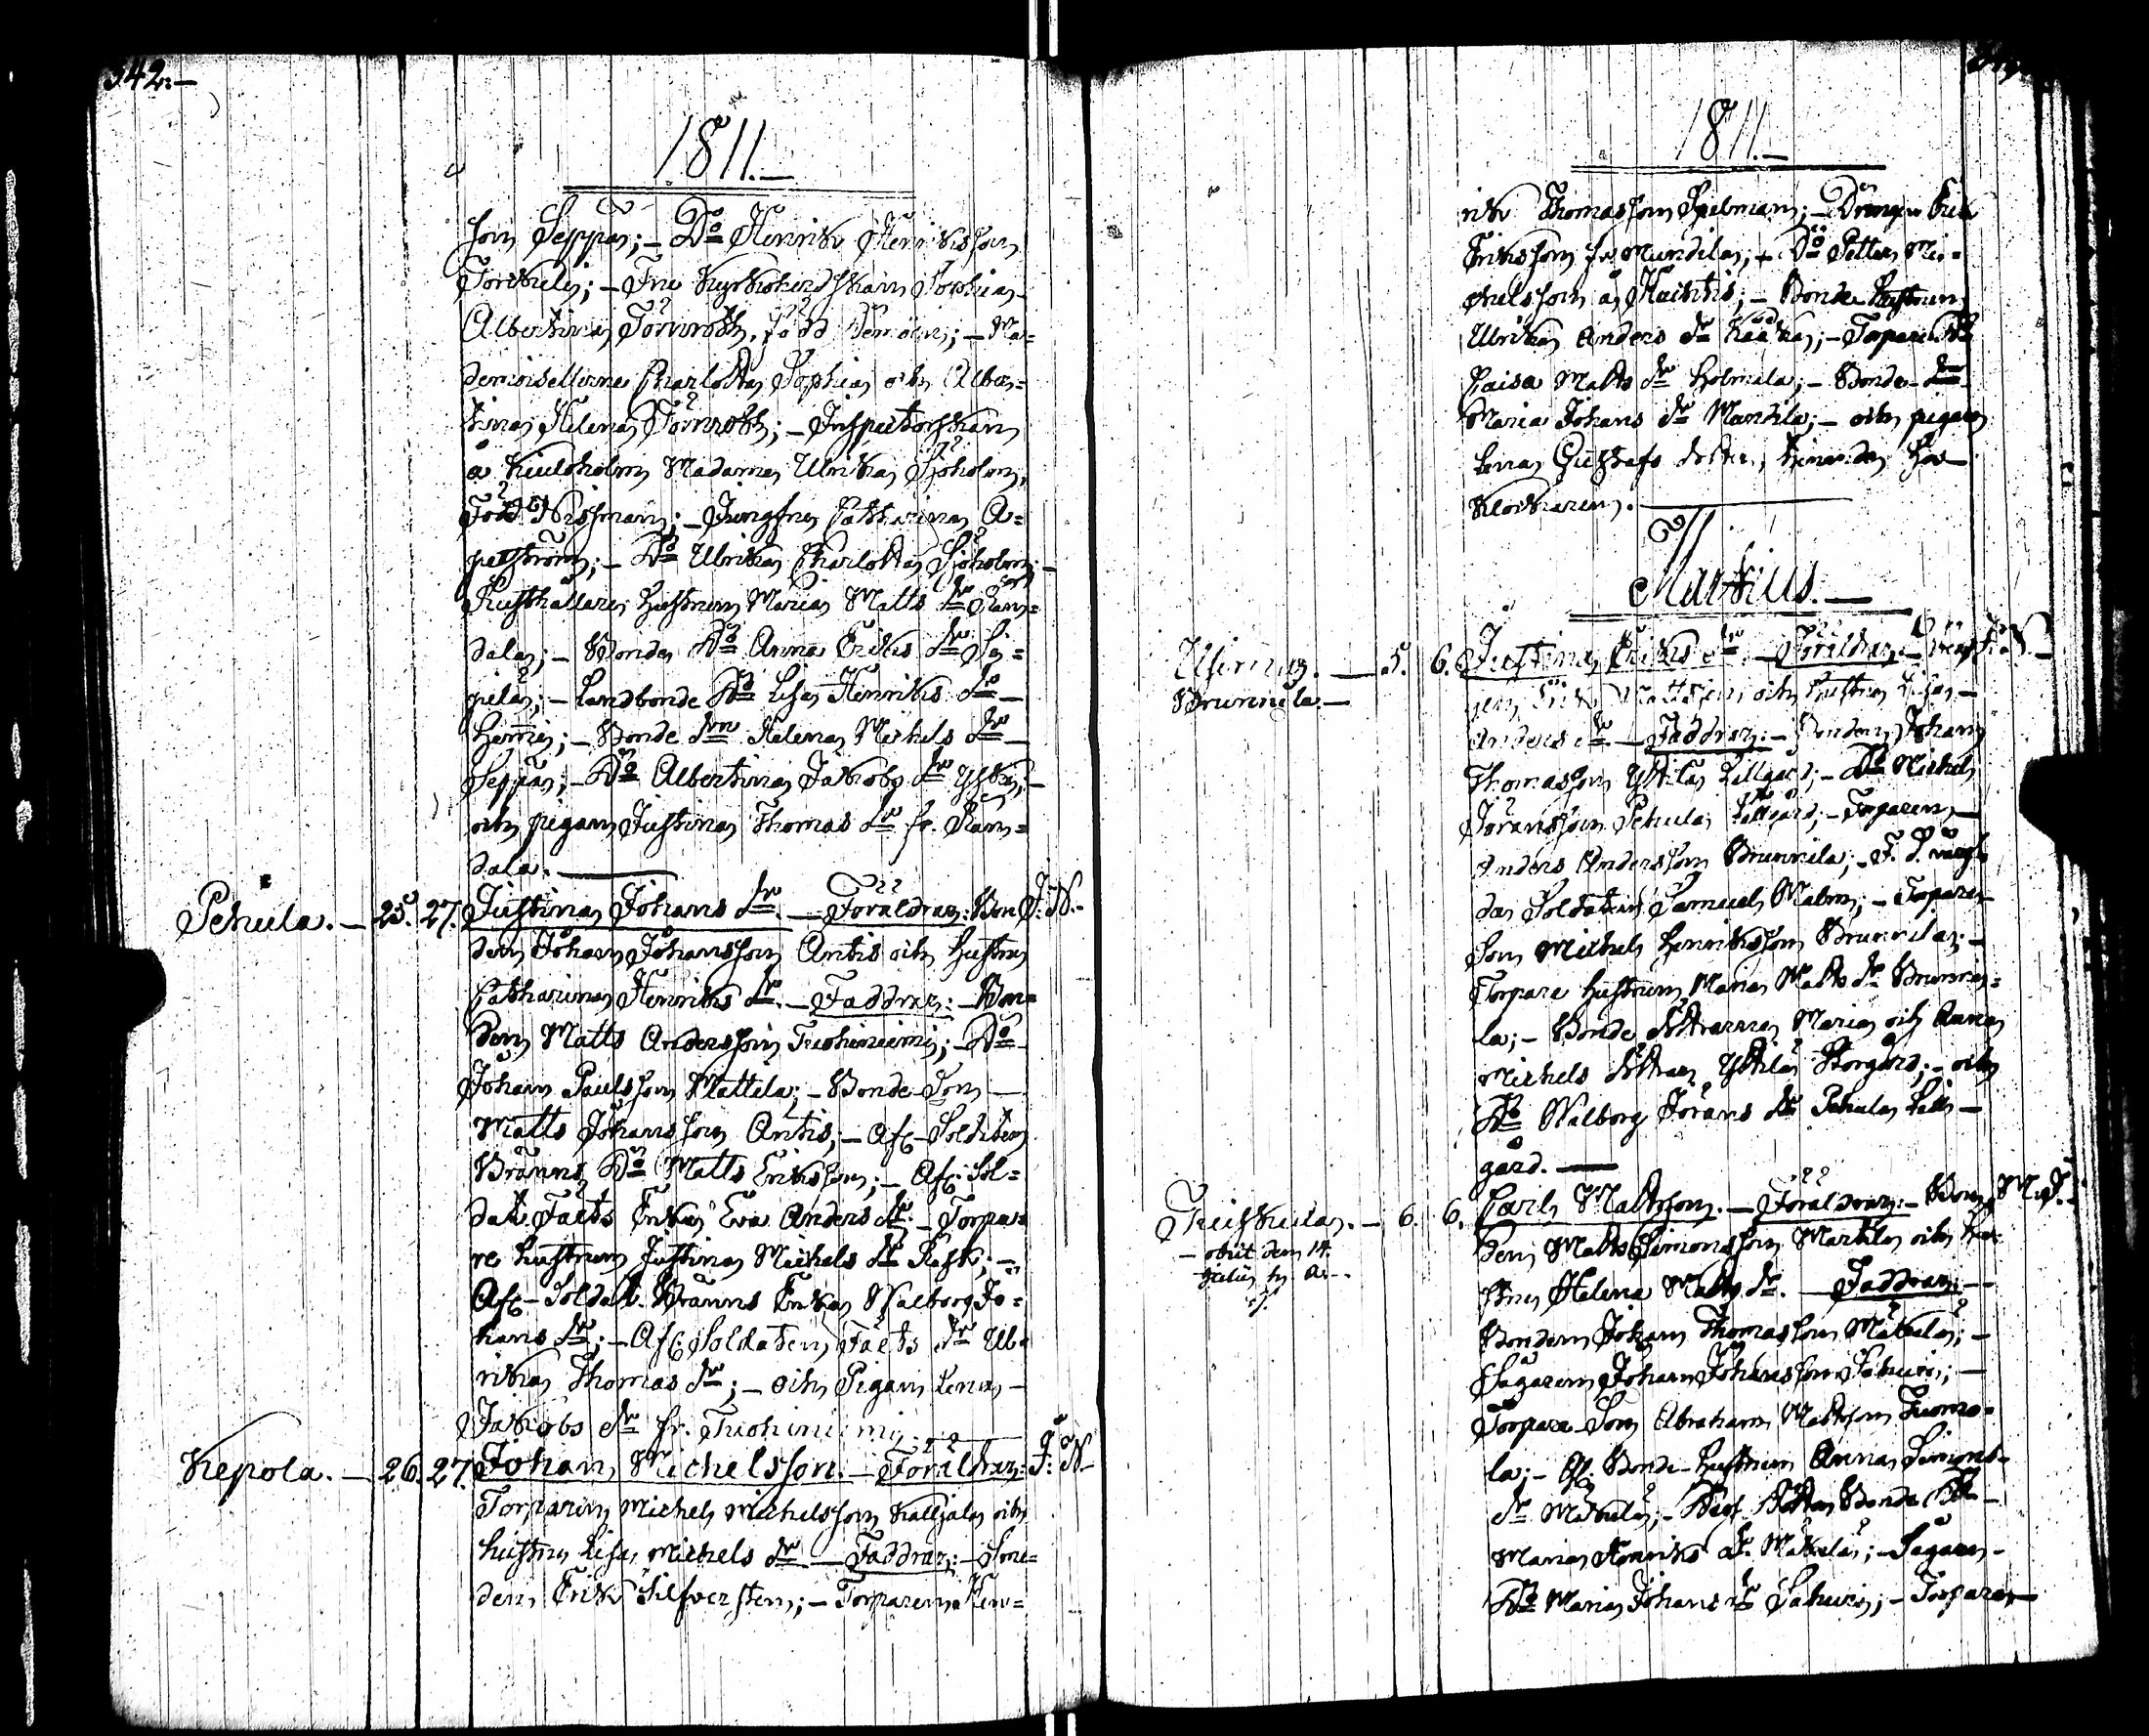 342.—
1811.—
son Seppä;— Do Henrik Henriksson
Torkeli;— Fru Kyrkoherdskan Sophia
Albertina Törnroth, född Temoin;— Ma=
demoisellerne Charlotta Sophia och Alber=
tina Helena Törnroth;— Inspectorskan
å Kiuloholm Madame Ulrika Sjöholm,
född Nisman;— Jungfru Catharina A=
Do Ulrika Charlotta Sjöholm;—
Rusthållare Hustrun Maria Matts dr Ran=
dala;— Bonde Do Anna Eriks dr Pi=
pelä;— Landbonde Do Lisa Henriks dr—
Bonde drn Helena Michels dr—
Seppä;— Do Albertina Jakobs dr
och pigan Justina Thomas dr fr. Ran=
dala.
Pehula.— 25. 27. Justina Johans dr.— Föräldrar: Bon J. N.
den Johan Johansson Antis och hustru
Catharina Henriks dr.— Faddrar:— Bon=
den Matts Andersson Do
Johan Paulsson Mattila;— Bonde Son—
Matts Johansson Antis;— Afsk. Soldaten
Bränns Do Matts Eriksson;— Afsk. Sol=
dat Faets Enka Eva Anders dr.— Torpa=
re hustrun Justina Michels dr Rask;—
Afsk. Soldat. Bränns Enka Walborg Jo=
hans dr;— Afsk. Soldaten Faets dr Ul=
rika Thomas dr;— och Pigan Lena—
Jakobs dr fr.
Kepola.— 26. 27. Johan Michelsson.— Föräldrar: J. N.
Torparen Michel Michelsson Kalljala och
hustru Lisa Michels dr— Faddrar:— Sme=
den Erik Silfversten;— Torparen Hen=
1811.—
rik Thomasson Spelman;— Drengen Erik
Eriksson fr. Mundila;— Do Petter Mi=
chelsson å Bonde Hustrun
Ulrika Anders dr Torpare
Caisa Matts dr Holmala;— Bonde drn
Maria Johans dr Mankila;— och pigan
Lena Gustafs dotter, hos
Klockaren.
Martius.—
Brunnila.— 5. 6. Justina Eriks dr.— Föräldrar:—
Erik Mattsson och hustru Lisa—
Anders dr.— Faddrar:— Bonden Johan
Thomasson Yttilä Lillgård;— Do Michel
Jöransson Pehula Lillgård;— Torparen
Anders Andersson Brunnila;—
Soldaten Samuel Malm;— Torpare
Son Michel Henriksson Brunnila;—
Torpare hustrun Maria Matts dr Brunni=
la;— Bonde döttrarna Maria och Anna
Michels döttrar Yttilä Storgård;— och
Do Walborg Jörans dr Pehula Lill—
gård.
6. 6. Carl Mattsson.— Föräldrar:— Bon= M. J.
— obiit den 14
Julii h. a.—
den Matts Simonsson Martila och hu=
stru Helena Matts dr.— Faddrar:—
Bonden Johan Thomasson Mäkelä;—
Sagaren Johan Johansson
Torpare Son Abraham Mattsson Tuomo=
la;— Afl. Bonde Hustrun Anna Simons—
dr Mäkelä;— Bonde
Maria Henriks dr. Mäkelä;— Sagare—
Do Maria Johans dr Torpare—